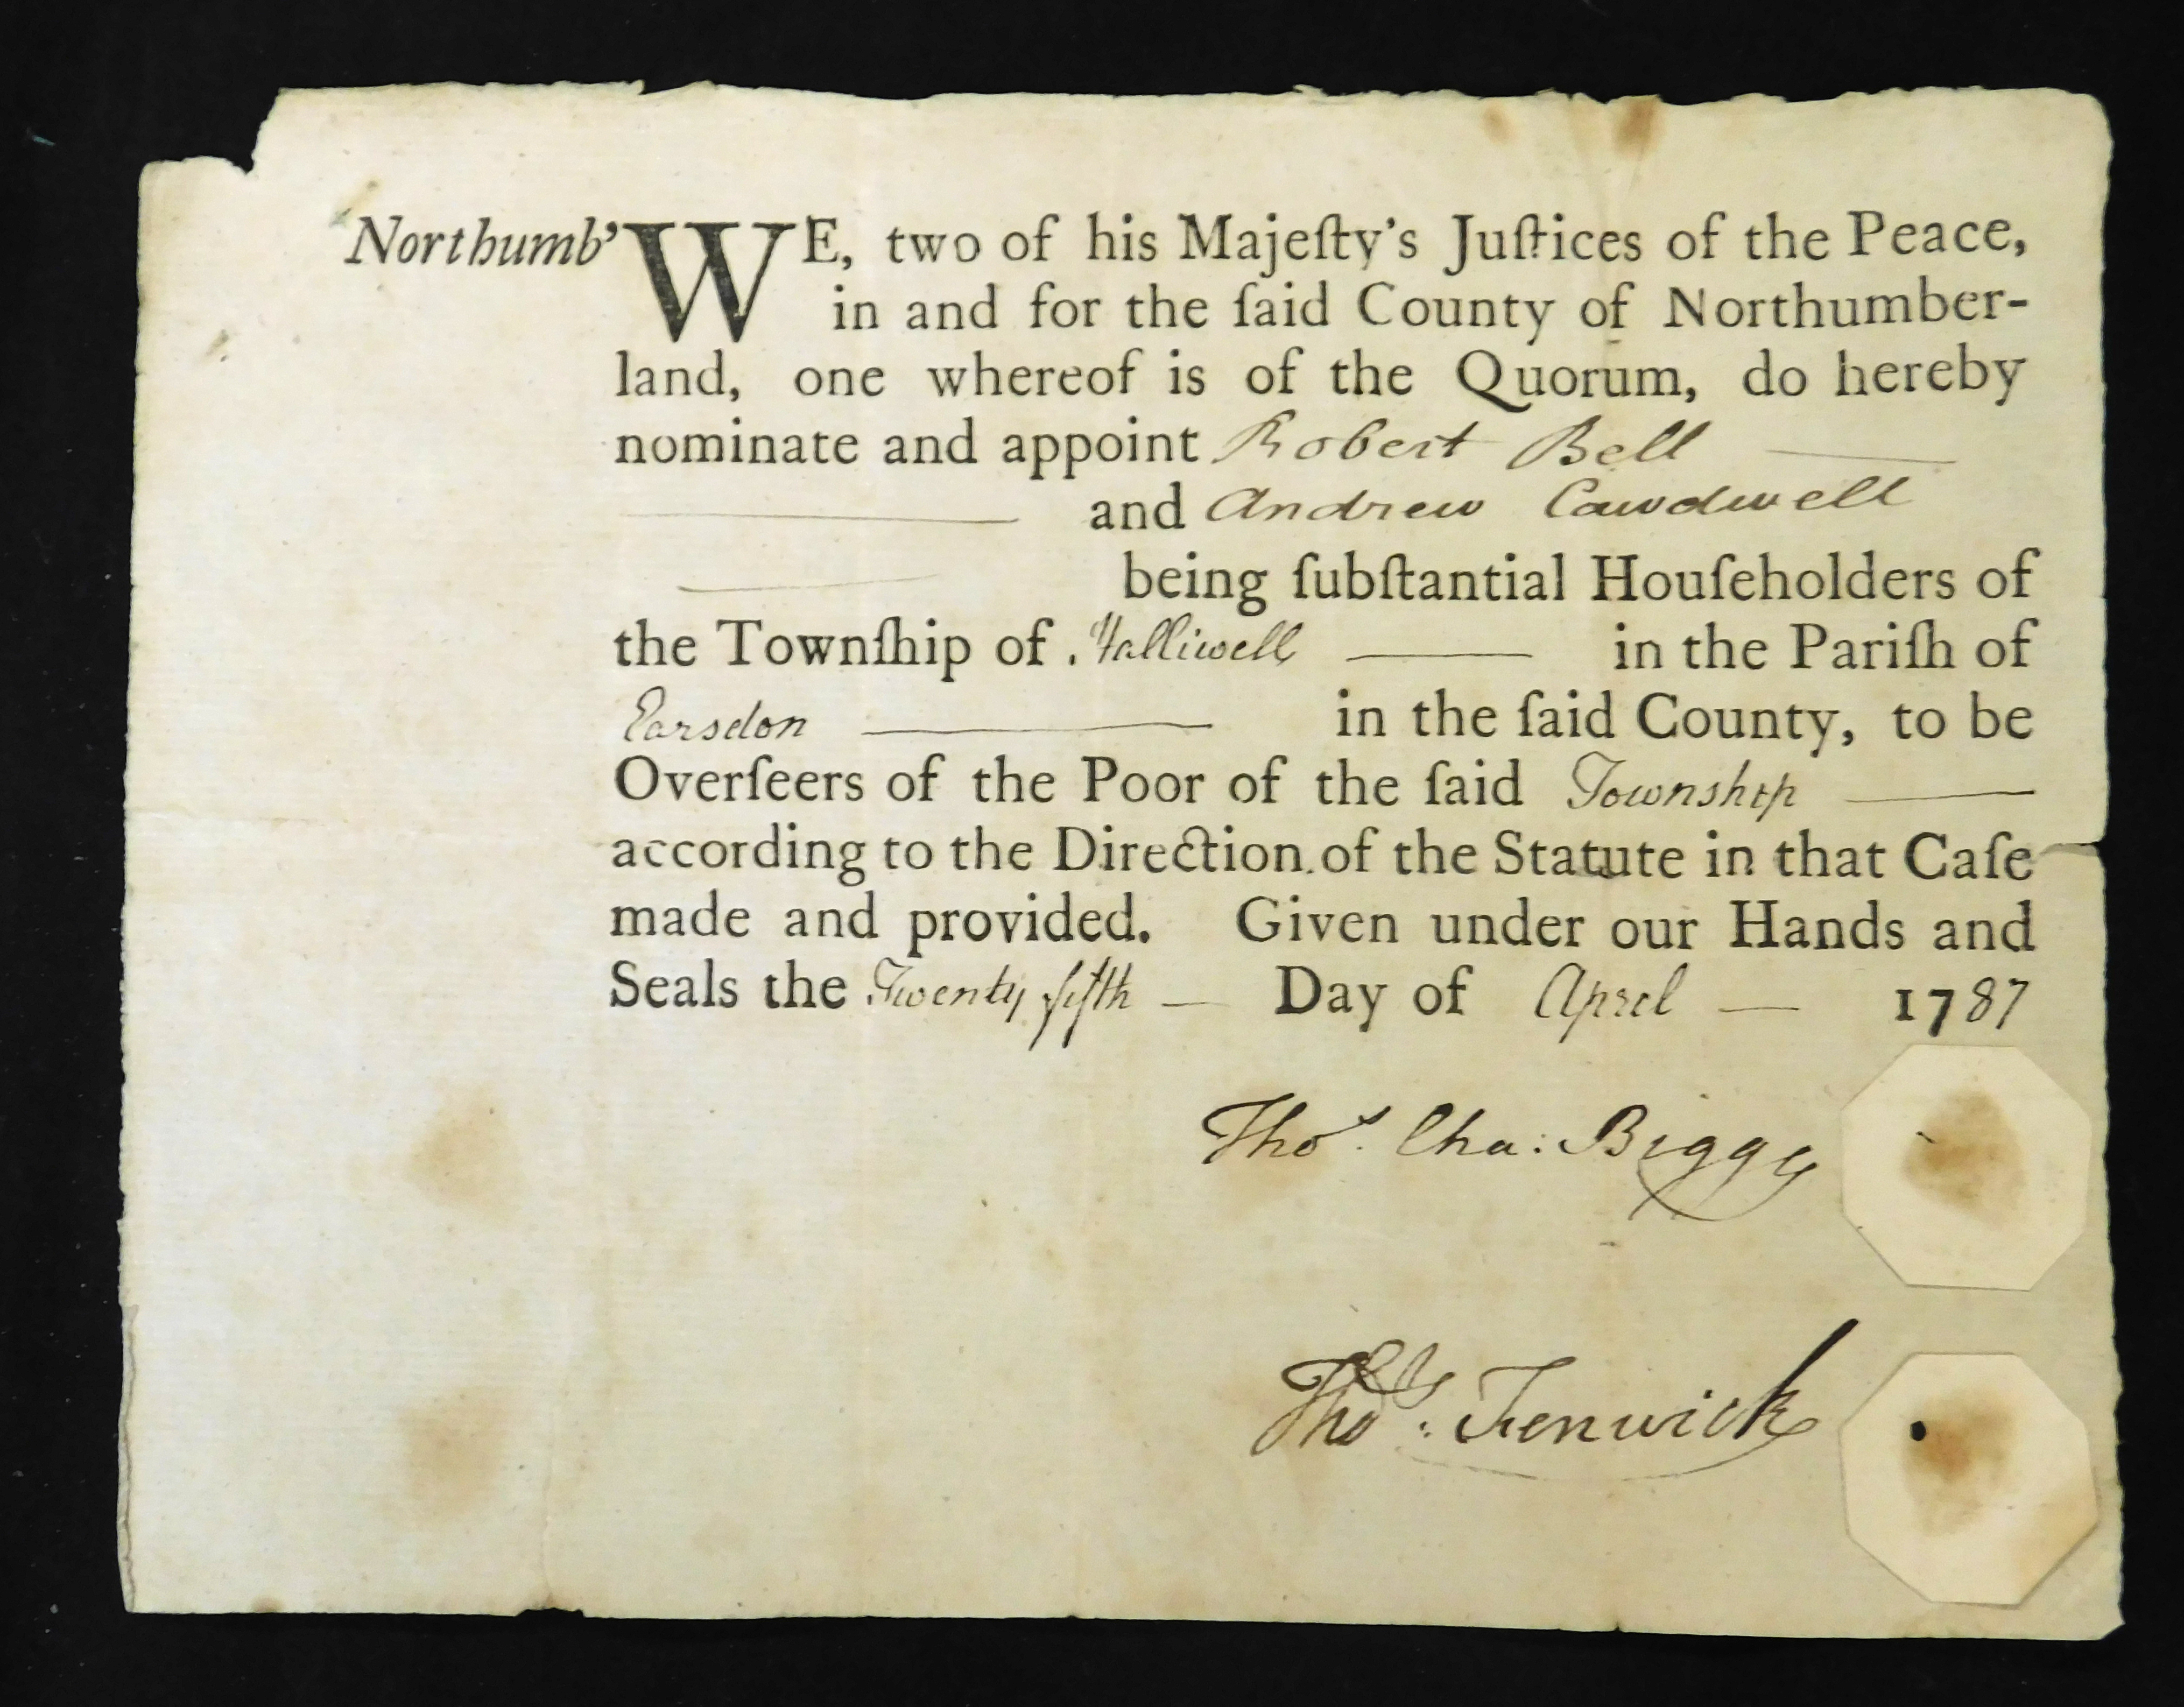 Northumb' WE, two of his Majeſty's Juſtices of the Peace,
in and for the ſaid County of Northumber-
land, one whereof is of the Quorum, do hereby
nominate and appoint Robert Bell
and Andrew Cawdwell
being ſubſtantial Houſeholders of
the Townſhip of Halliwell in the Pariſh of
Earsdon in the ſaid County, to be
Overſeers of the Poor of the ſaid Township
according to the Direction of the Statute in that Caſe
made and provided. Given under our Hands and
Seals the Twenty fifth — Day of April — 1787
Thos. Cha: Bigge
Thos: Fenwick